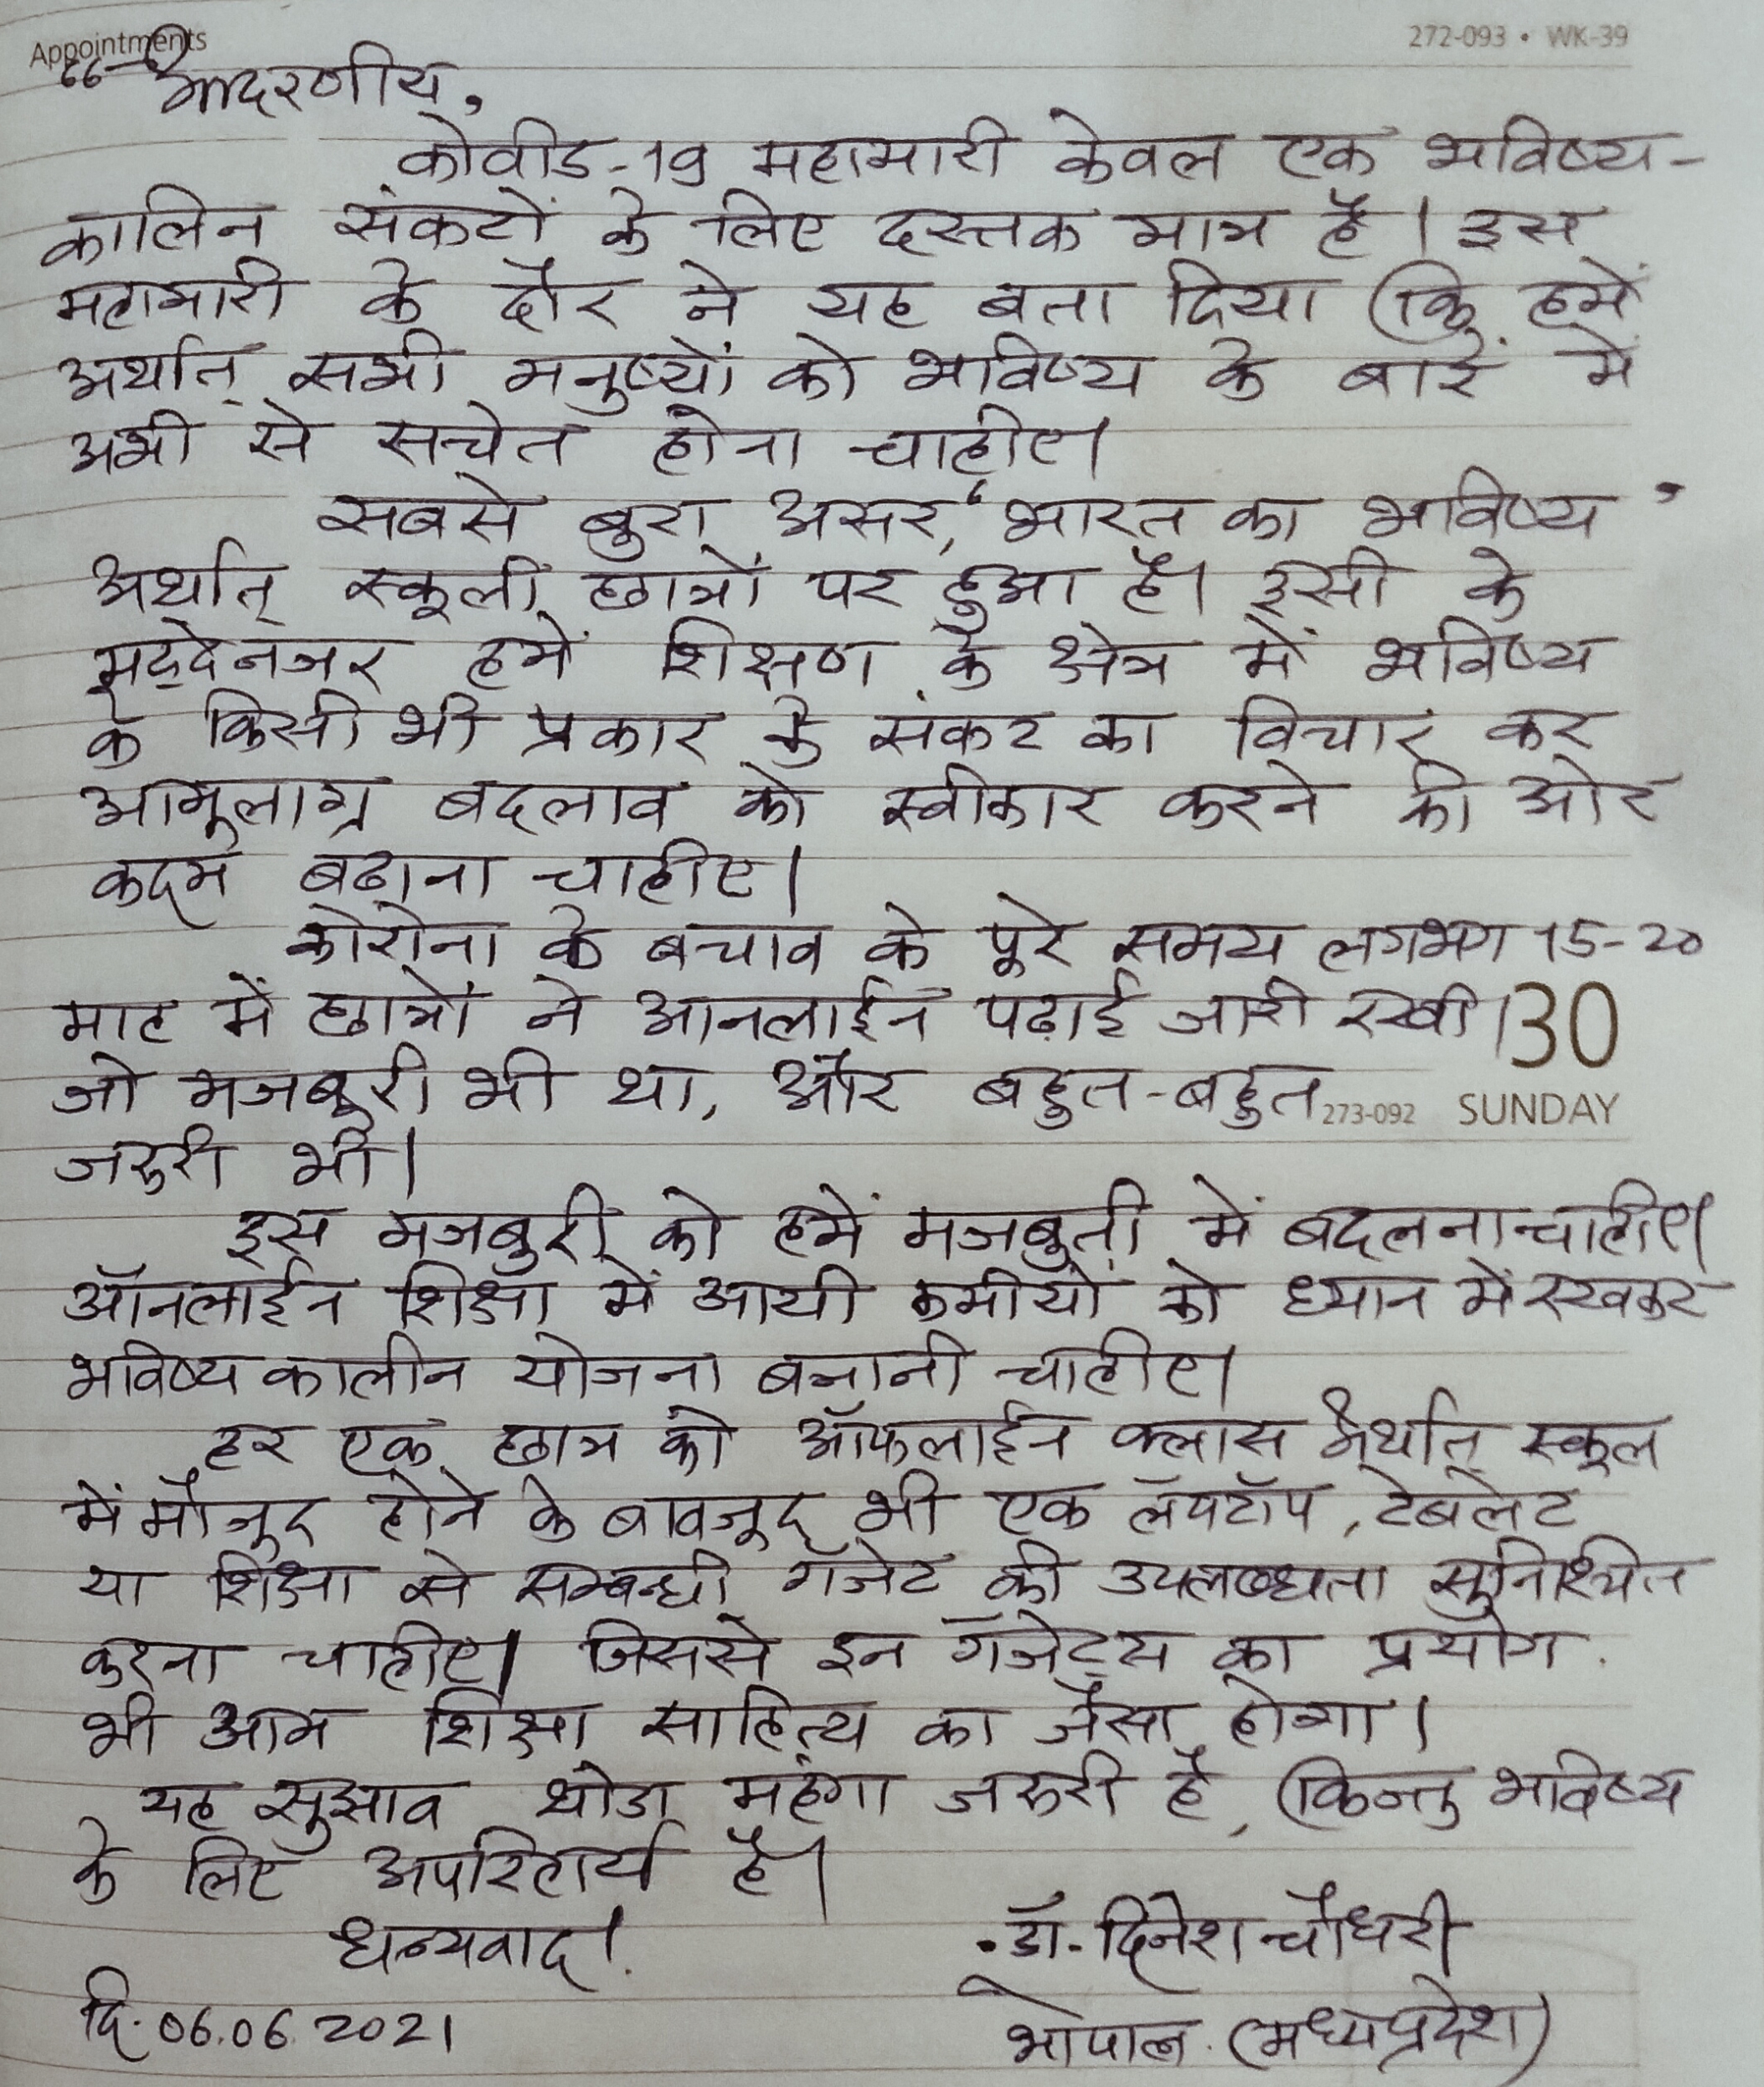 Appointments
272-093 • WK-39
आदरणीय,
कोवीड-19 महामारी केवल एक भविष्य-
कालिन संकटों के लिए दस्तक मात्र है। इस
महामारी के दौर ने यह बता दिया कि हमें
अर्थात् सभी मनुष्यों को भविष्य के बारें में
अभी से सचेत होना चाहीए।
सबसे बुरा असर, 'भारत का भविष्य'
अर्थात् स्कूली छात्रों पर हुआ है। इसी के
मद्देनजर हमें शिक्षण के क्षेत्र में भविष्य
के किसी भी प्रकार के संकट का विचार कर
आमुलाग्र बदलाव को स्वीकार करने की ओर
कदम बढाना चाहीए।
कोरोना के बचाव के पूरे समय लगभग 15-20
माह में छात्रों ने आनलाईन पढ़ाई जारी रखी।
30
जो मजबूरी भी था, और बहुत-बहुत
273-092 SUNDAY
जरुरी भी।
इस मजबुरी को हमें मजबुती में बदलना चाहीए।
ऑनलाईन शिक्षा में आयी कमीयों को ध्यान में रखकर
भविष्यकालीन योजना बनानी चाहीए।
हर एक छात्र को ऑफलाईन क्लास अर्थात् स्कूल
में मौजुद होने के बावजूद भी एक लॅपटॉप, टेबलेट
या शिक्षा से सम्बन्धी गॅजेट की उपलब्धता सुनिश्चित
करना चाहीए। जिससे इन गॅजेट्स का प्रयोग
भी आम शिक्षा साहित्य का जैसा होगा।
यह सुझाव थोडा महंगा जरुरी है, किन्तु भविष्य
के लिए अपरिहार्य है।
धन्यवाद!
डॉ. दिनेश चौधरी
दि. 06.06.2021
भोपाल. (मध्यप्रदेश)